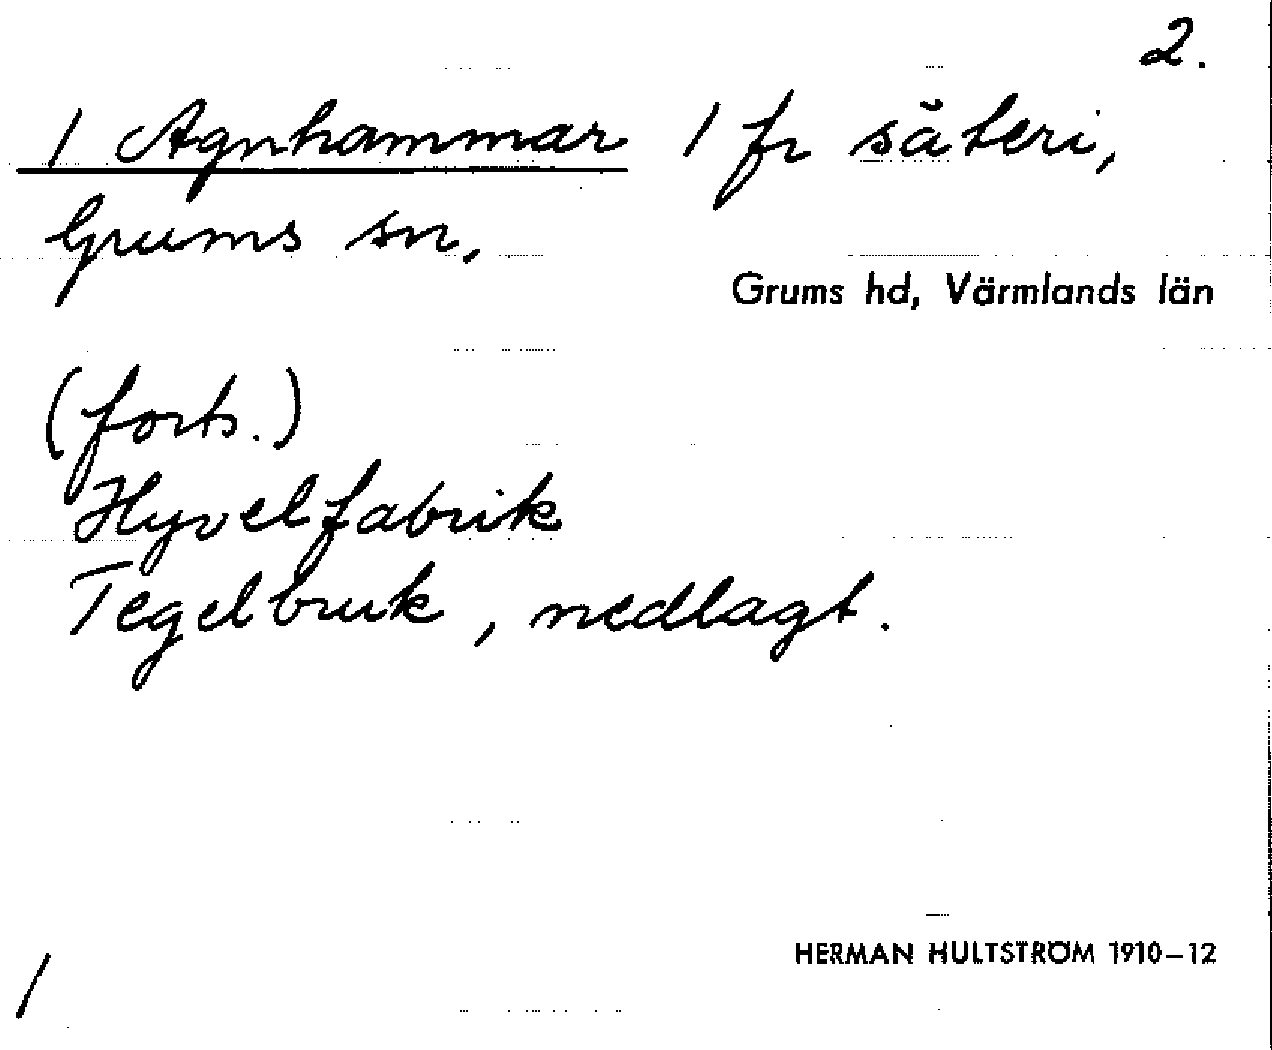 2.
/ Agnhammar / fr säteri,
Grums sn.
Grums hd, Värmlands län
(forts.)
Hyvelfabrik
Tegelbruk, nedlagt.
HERMAN HULTSTRÖM 1910–12
/